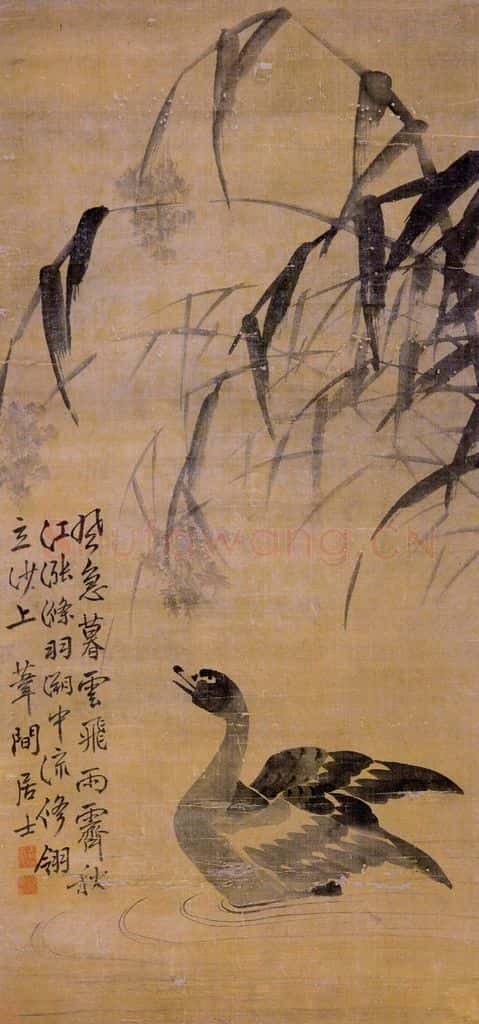 風急暮雲飛雨霽秋
江漲滌羽溯中流修翎
立沙上 葦間居士